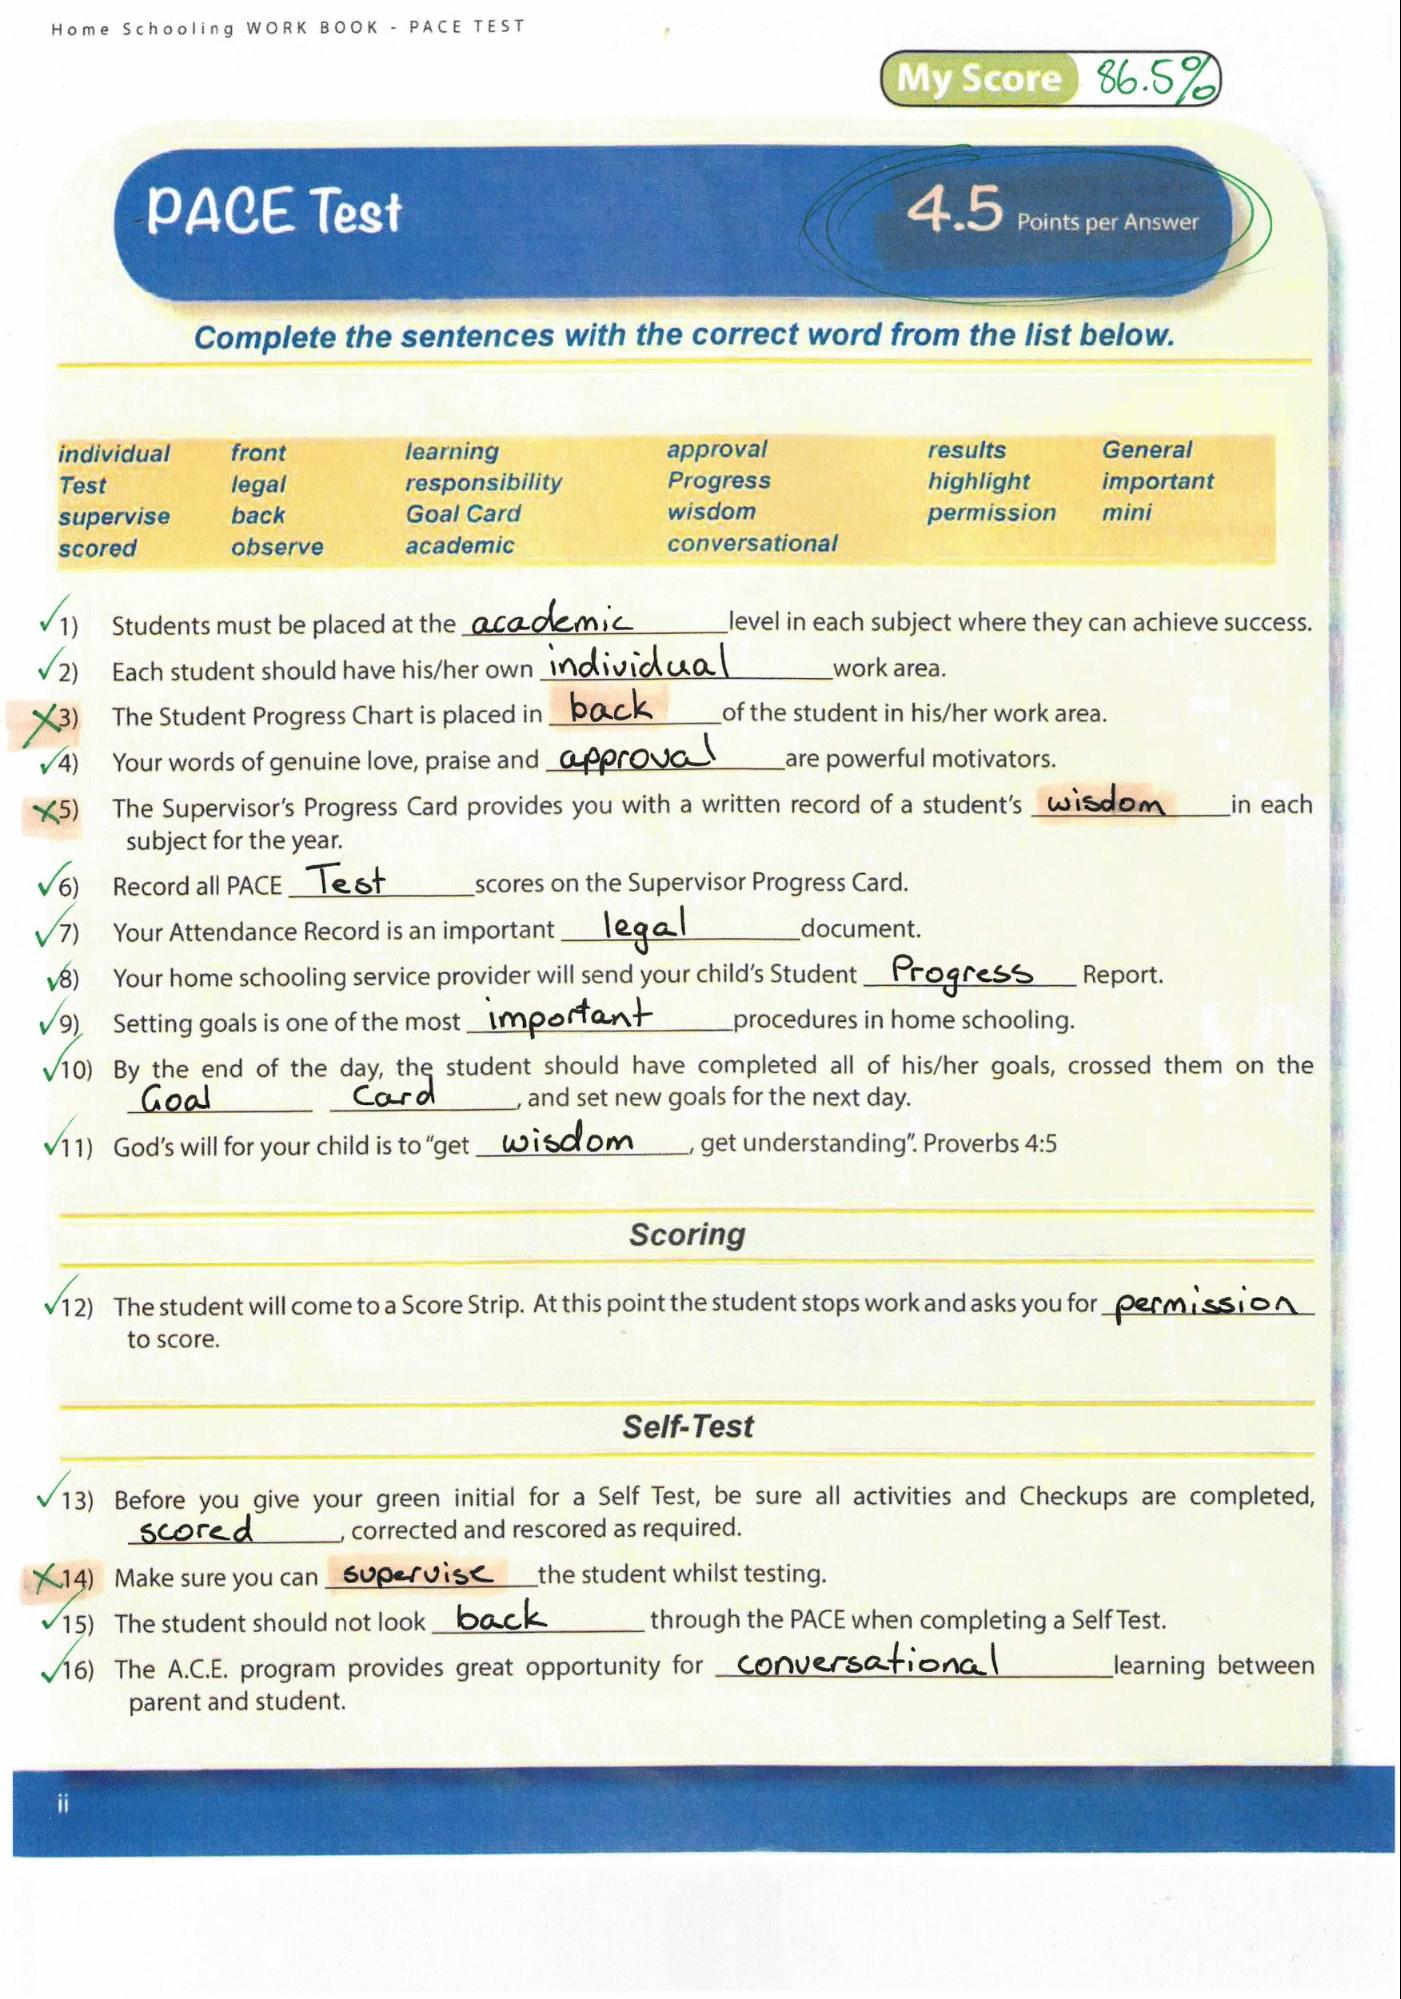 Home Schooling WORK BOOK - PACE TEST
My Score 86.5%
PACE Test
4.5 Points per Answer
Complete the sentences with the correct word from the list below.
individual front learning approval results General
Test legal responsibility Progress highlight important
supervise back Goal Card wisdom permission mini
scored observe academic conversational
1) Students must be placed at the academic level in each subject where they can achieve success.
2) Each student should have his/her own individual work area.
3) The Student Progress Chart is placed in back of the student in his/her work area.
4) Your words of genuine love, praise and approval are powerful motivators.
5) The Supervisor's Progress Card provides you with a written record of a student's wisdom in each
subject for the year.
6) Record all PACE Test scores on the Supervisor Progress Card.
7) Your Attendance Record is an important legal document.
8) Your home schooling service provider will send your child's Student Progress Report.
9) Setting goals is one of the most important procedures in home schooling.
10) By the end of the day, the student should have completed all of his/her goals, crossed them on the
Goal Card, and set new goals for the next day.
11) God's will for your child is to "get wisdom, get understanding". Proverbs 4:5
Scoring
12) The student will come to a Score Strip. At this point the student stops work and asks you for permission
to score.
Self-Test
13) Before you give your green initial for a Self Test, be sure all activities and Checkups are completed,
scored, corrected and rescored as required.
14) Make sure you can supervise the student whilst testing.
15) The student should not look back through the PACE when completing a Self Test.
16) The A.C.E. program provides great opportunity for conversational learning between
parent and student.
ii